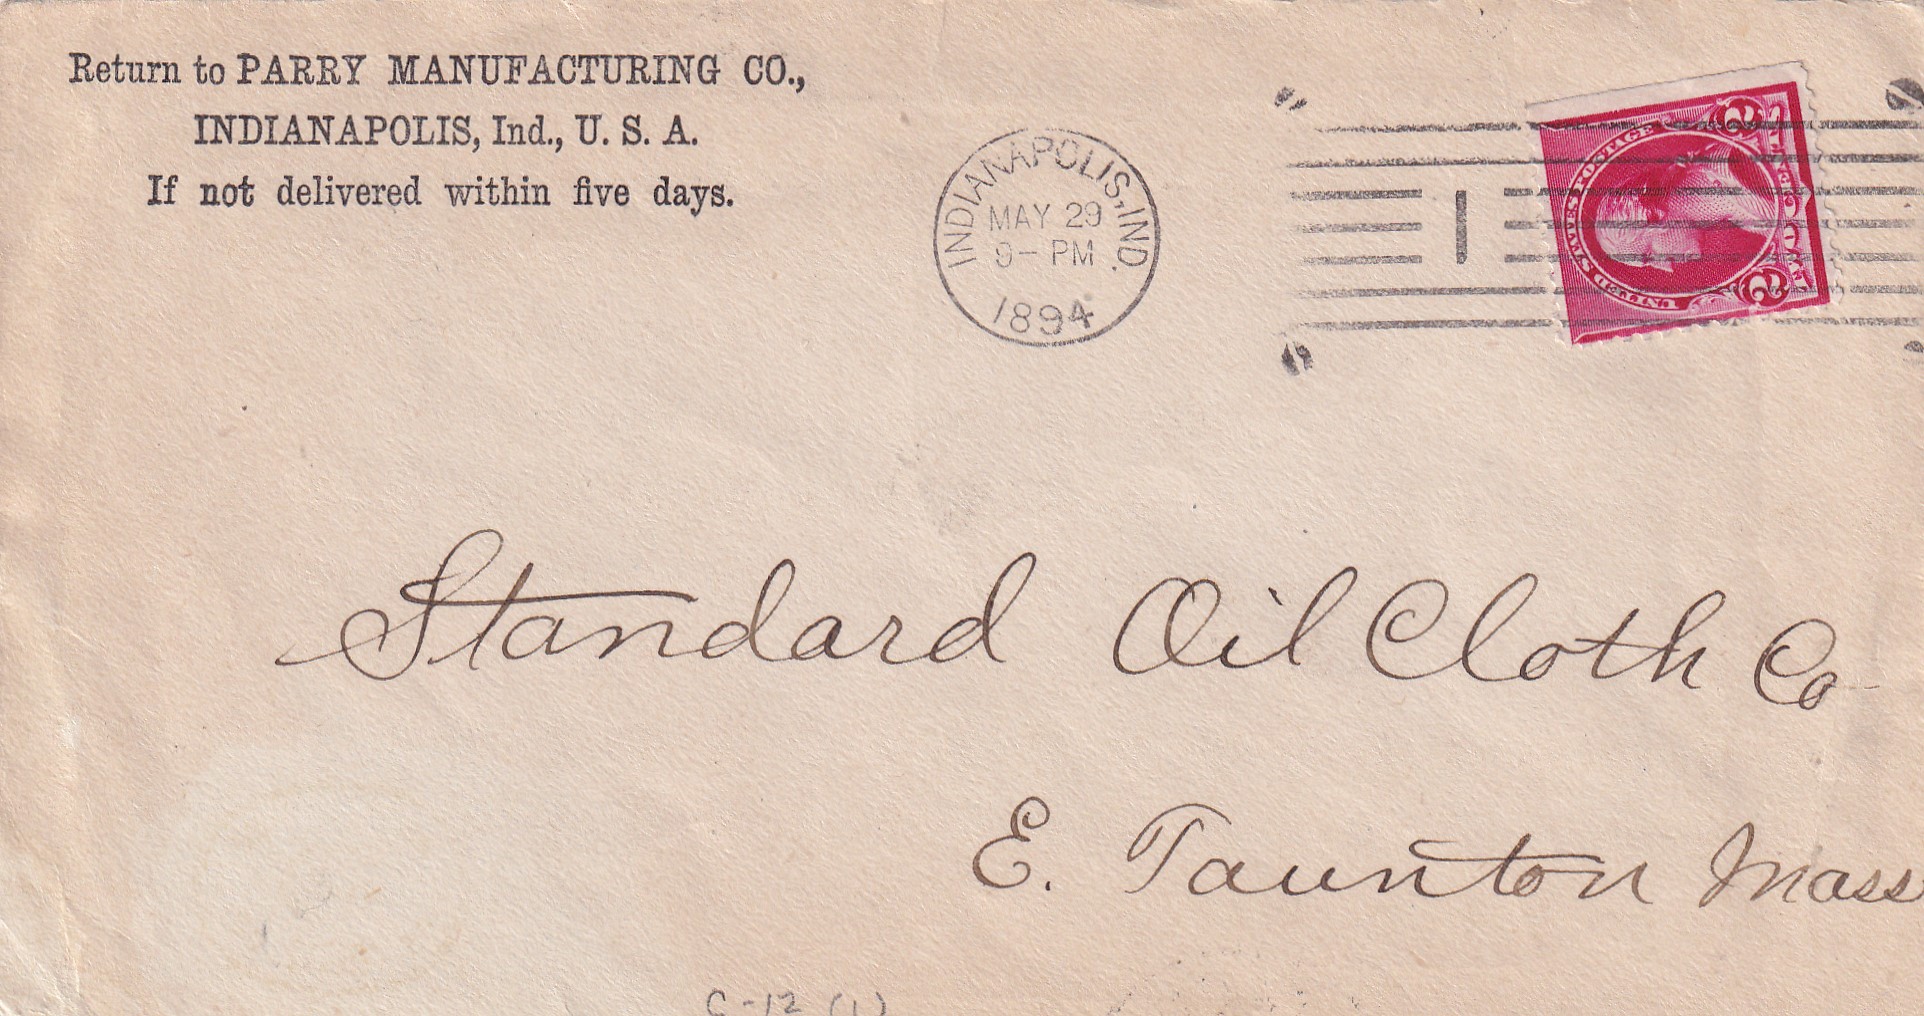 Return to PARRY MANUFACTURING CO.,
INDIANAPOLIS, Ind., U. S. A.
If not delivered within five days.
INDIANAPOLIS, IND.
MAY 29
9- PM
1894
1
UNITED STATES POSTAGE
2 TWO CENTS 2
Standard Oil Cloth Co
E. Taunton Mass
C-12 (1)